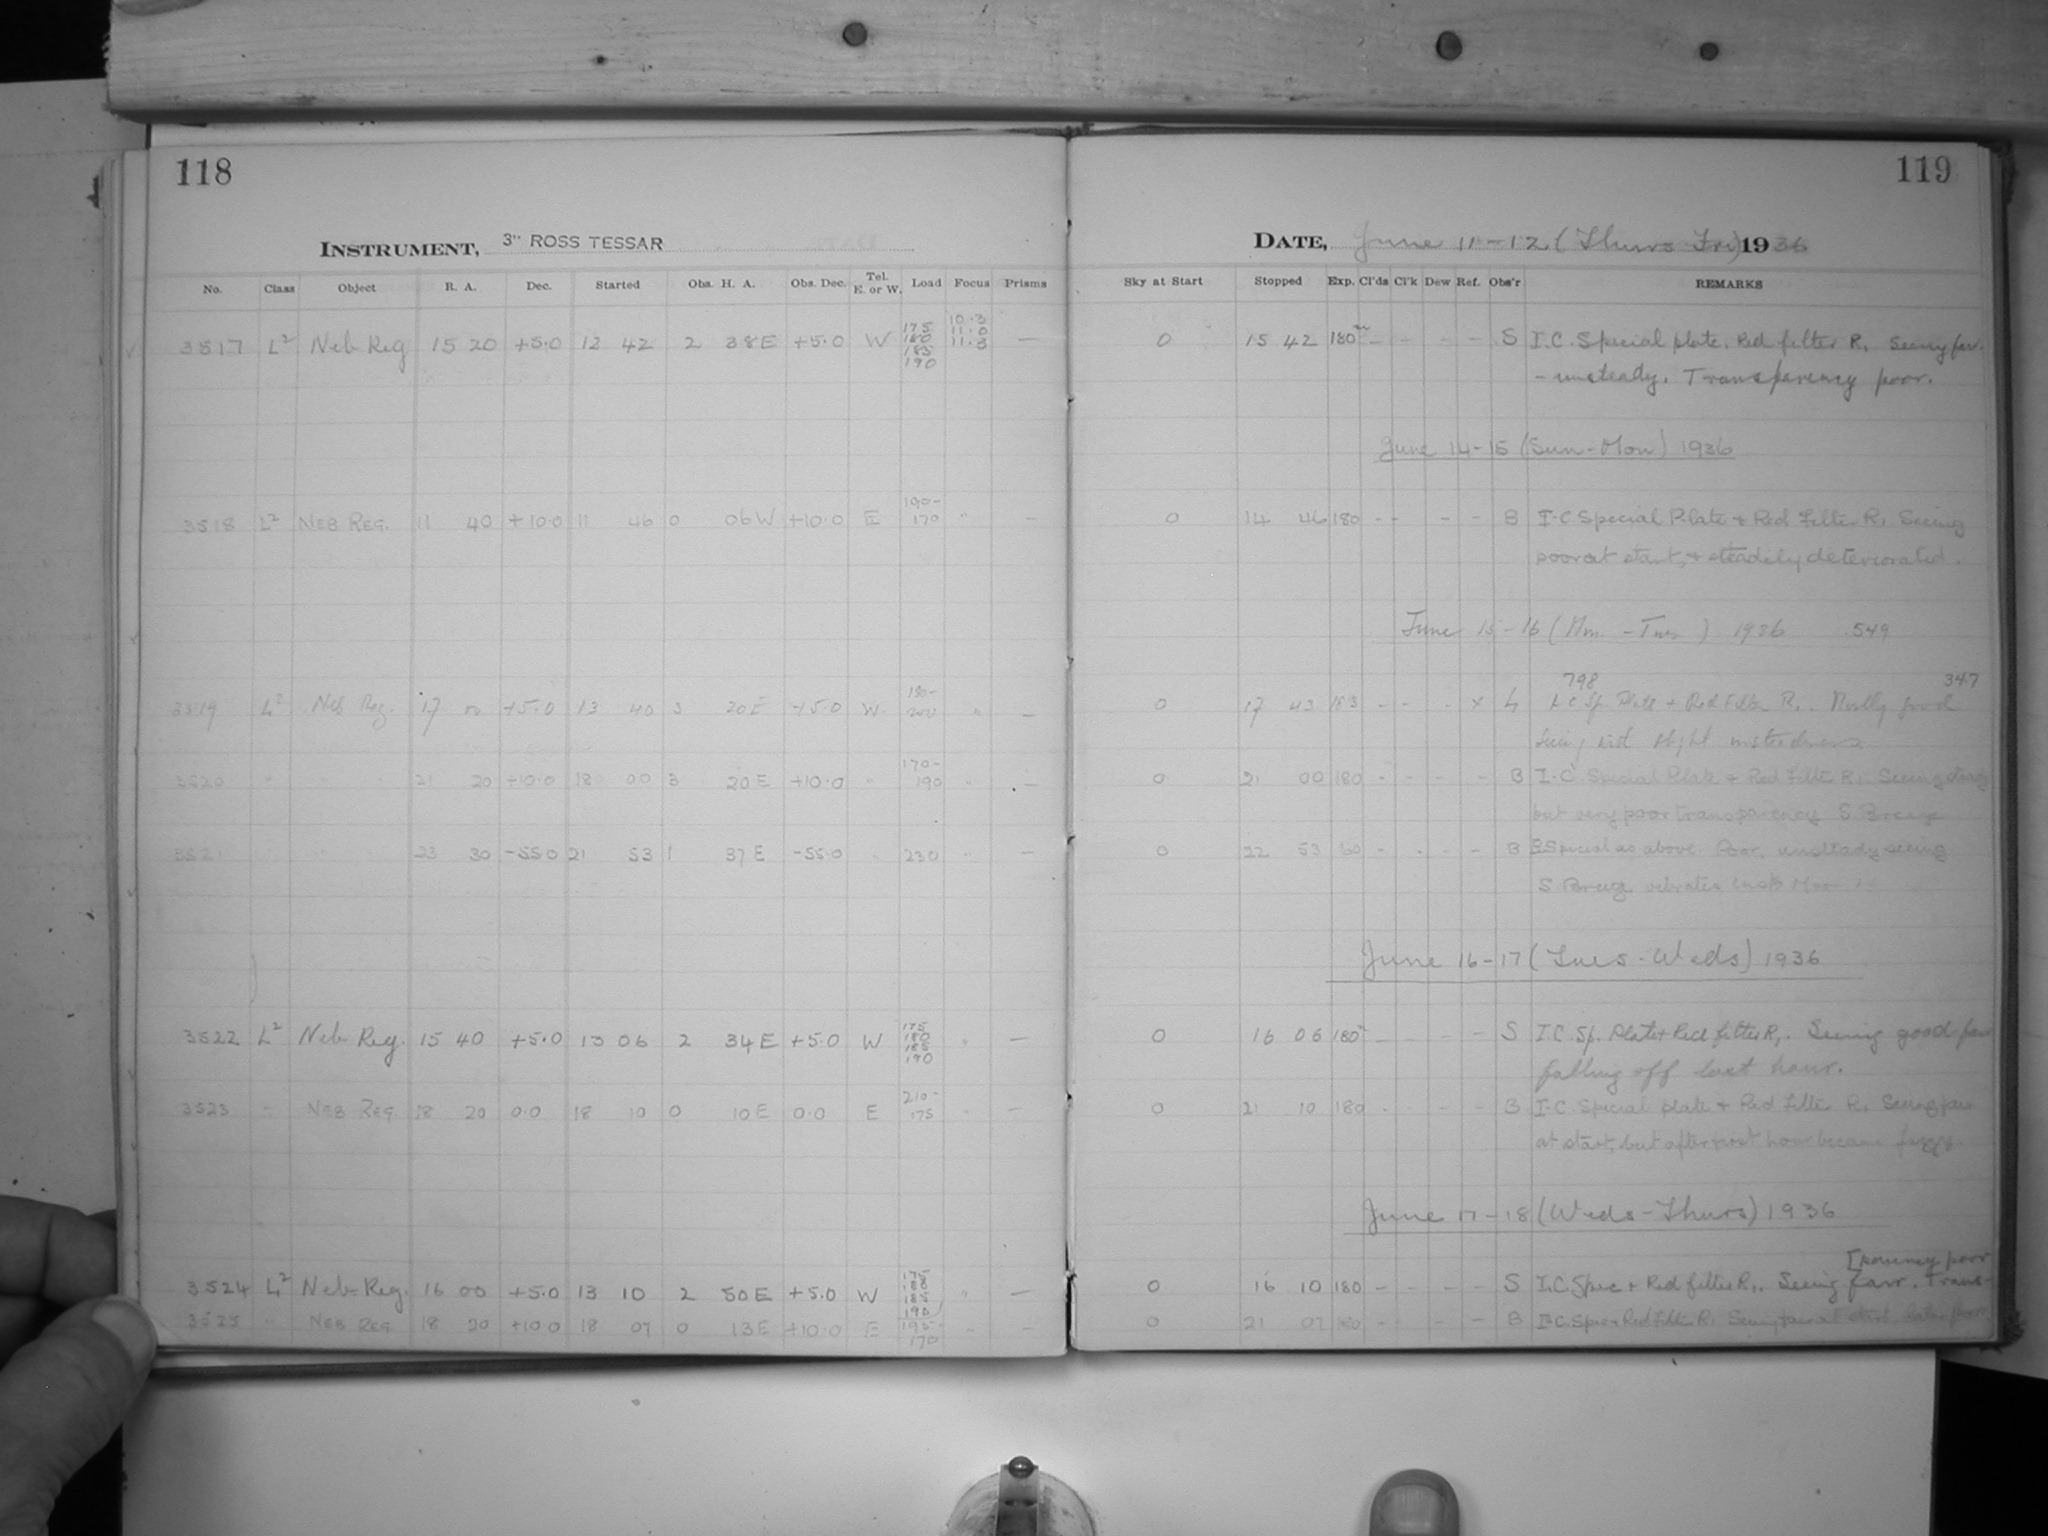 118
INSTRUMENT, 3" ROSS TESSAR
No. Class Object R. A. Dec. Started Obs. H. A. Obs. Dec. Tel. E. or W. Load Focus Prisms
3517 L² Neb Reg 15 20 +5.0 12 42 2 38 E +5.0 W 175 180 185 190 10.3 11.0 11.3 —
3518 L² NEB REG. 11 40 +10.0 11 46 0 06 W +10.0 E 190- 170 " —
3519 L² Neb Reg. 17 00 +5.0 13 40 3 20 E +5.0 W " —
3520 " " " 21 20 +10.0 18 00 3 20 E +10.0 " 170- 190 " —
3521 " " 23 30 -55.0 21 53 1 37 E -55.0 " 230 " —
3522 L² Neb Reg. 15 40 +5.0 13 06 2 34 E +5.0 W 175 180 185 190 " —
3523 " NEB REG 18 20 0.0 18 10 0 10 E 0.0 E 210- 175 " —
3524 L² Neb Reg. 16 00 +5.0 13 10 2 50 E +5.0 W 175 185 190 " —
3525 " NEB REG 18 20 +10.0 18 07 0 13 E +10.0 E 195- 170 " —
119
DATE, June 11-12 (Thurs Fri) 1936
Sky at Start Stopped Exp. Cl'ds Cl'k Dew Ref. Obs'r REMARKS
0 15 42 180ᵐ — - - - S I.C. Special plate. Red filter R₁ Seeing fair.
- unsteady. Transparency poor.
June 14-15 (Sun-Mon) 1936
0 14 46 180 - - - - B I.C. Special Plate + Red Filter R₁ Seeing
poor at start, & steadily deteriorated.
June 15-16 (Mon. - Tues ) 1936 549
798 347
0 17 43 183 - - - x L I C Sp. Plate + Red Filter R₁. Mostly good
seeing with slight unsteadiness
0 21 00 180 - - - - B I.C. Special Plate + Red Filter R₁. Seeing
but very poor transparency S. Breeze
0 22 53 60 - - - - B Special as above. Poor, unsteady seeing
S. Breeze vibrates
June 16-17 (Tues-Weds) 1936
0 16 06 180ᵐ — - - - S I.C. Sp. Plate + Red filter R₁. Seeing good fair
falling off last hour.
0 21 10 180 - - - - B I.C. Special plate + Red Filter R₁ Seeing fair
at start, but after first hour became
June 17-18 (Weds-Thurs) 1936
[parency poor
0 16 10 180 - - - - S I.C. Spec + Red filter R₁. Seeing fair. Trans-
0 21 07 180 - - - - B I.C. Spec + Red Filter R₁ Seeing fair at start, later poor